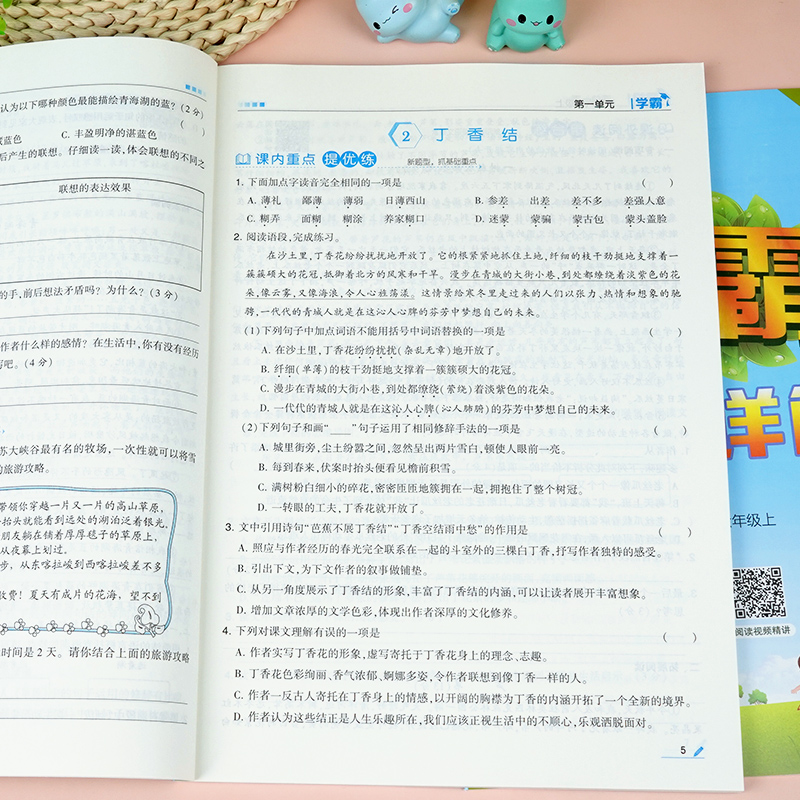 认为以下哪种颜色最能描绘青海湖的蓝?(2分)
(    )
蓝色
C. 丰盈明净的湛蓝色
后产生的联想。仔细读一读,体会联想的不同之
联想的表达效果
的手,前后想法矛盾吗?为什么?(3分)
作者什么样的感情?在生活中,你有没有经历
写吧。(4分)
苏大峡谷最有名的牧场,一次性就可以将雪
的旅游攻略。
带领你穿越一片又一片的高山草原,
抬头就能看到远处的湖泊泛着银光,
朋友躺在铺着厚厚毯子的草原上,
从夜幕上划过。
步,从东喀拉峻到西喀拉峻差不多
收费!夏天有成片的花海,望不到
时间是2天。请你结合上面的旅游攻略
第一单元 学霸
2 丁香结
课内重点 提优练 新题型,抓基础重点
1. 下面加点字读音完全相同的一项是 (    )
A. 薄礼 鄙薄 薄弱 日薄西山 B. 参差 出差 差不多 差强人意
C. 糊弄 面糊 糊涂 养家糊口 D. 迷蒙 蒙骗 蒙古包 蒙头盖脸
2. 阅读语段,完成练习。
在沙土里,丁香花纷纷扰扰地开放了。它的根紧紧地抓住土地,纤细的枝干劲挺地支撑着一
簇簇硕大的花冠,抵御着北方的风寒和干旱。漫步在青城的大街小巷,到处都缭绕着淡紫色的花
朵,像云雾,又像海浪,令人心旌荡漾。这情景给寒冬里走过来的人们以张力、热情和想象的驰
骋,一代代的青城人就是在这沁人心脾的芬芳中梦想自己的未来。
(1)下列句子中加点词语不能用括号中词语替换的一项是 (    )
A. 在沙土里,丁香花纷纷扰扰(杂乱无章)地开放了。
B. 纤细(单薄)的枝干劲挺地支撑着一簇簇硕大的花冠。
C. 漫步在青城的大街小巷,到处都缭绕(萦绕)着淡紫色的花朵。
D. 一代代的青城人就是在这沁人心脾(沁人肺腑)的芬芳中梦想自己的未来。
(2)下列句子和画“____”句子运用了相同修辞手法的一项是 (    )
A. 城里街旁,尘土纷嚣之间,忽然呈出两片雪白,顿使人眼前一亮。
B. 每到春来,伏案时抬头便看见檐前积雪。
C. 满树粉白细小的碎花,密密匝匝地簇拥在一起,拥抱住了整个树冠。
D. 一转眼的工夫,丁香花就开放了。
3. 文中引用诗句“芭蕉不展丁香结”“丁香空结雨中愁”的作用是 (    )
A. 照应与作者经历的春光完全联系在一起的斗室外的三棵白丁香,抒写作者独特的感受。
B. 引出下文,为下文作者的叙事做铺垫。
C. 从另一角度展示了丁香结的形象,丰富了丁香结的内涵,可以让读者展开丰富想象。
D. 增加文章浓厚的文学色彩,体现出作者深厚的文化修养。
4. 下列对课文理解有误的一项是 (    )
A. 作者实写丁香花的形象,虚写寄托于丁香花身上的理念、志趣。
B. 丁香花色彩绚丽、香气浓郁、婀娜多姿,令作者联想到像丁香一样的人。
C. 作者一反古人寄托在丁香身上的情感,以开阔的胸襟为丁香的内涵开拓了一个全新的境界。
D. 作者认为这些结正是人生乐趣所在,我们应该正视生活中的不顺心,乐观洒脱面对。
5
霸
年级上
阅读视频精讲